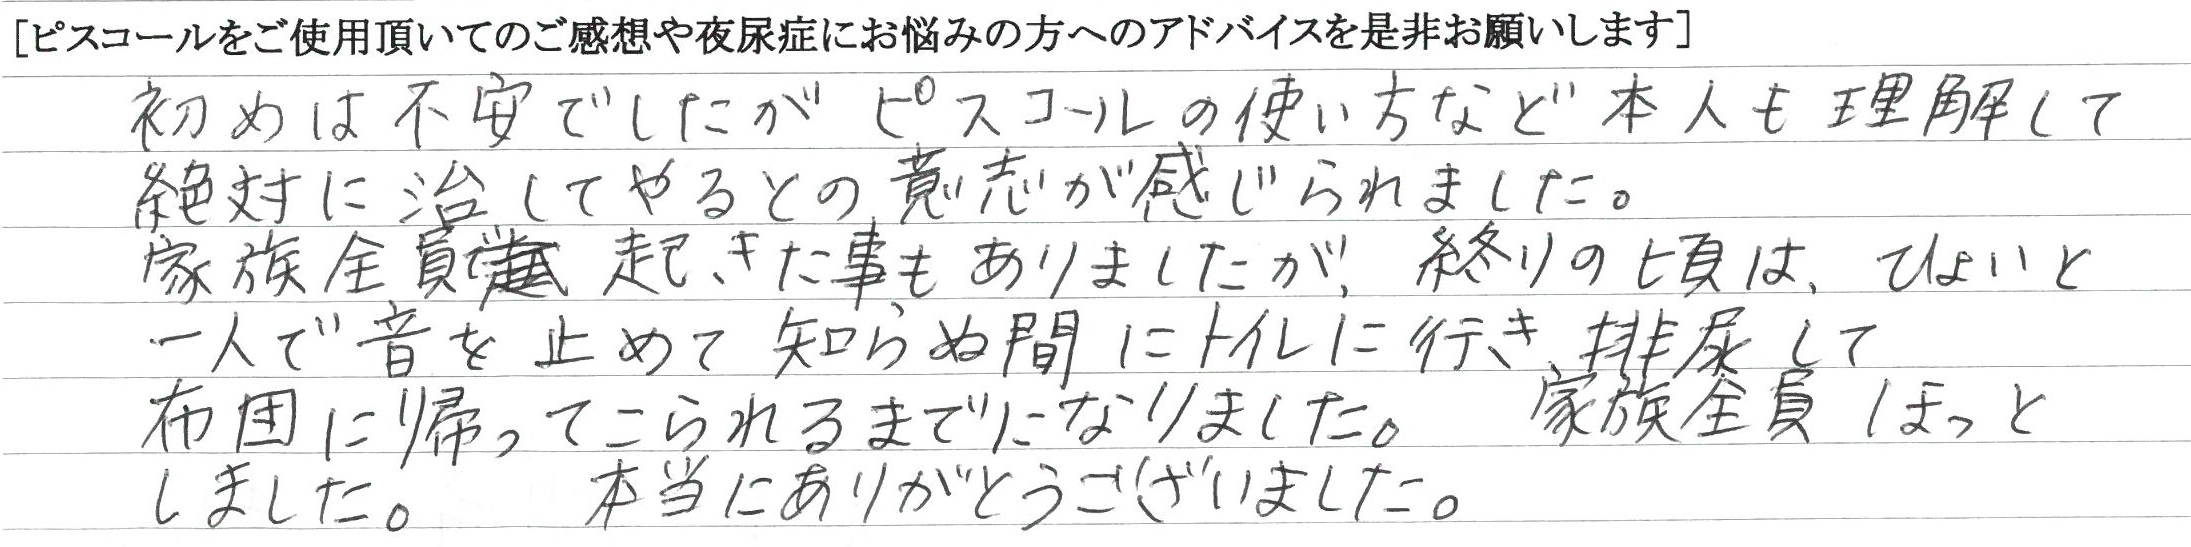 [ピスコールをご使用頂いてのご感想や夜尿症にお悩みの方へのアドバイスを是非お願いします]
初めは不安でしたがピスコールの使い方など本人も理解して
絶対に治してやるとの意志が感じられました。
家族全員で起きた事もありましたが、終りの頃は、ひょいと
一人で音を止めて知らぬ間にトイレに行き、排尿して
布団に帰ってこられるまでになりました。 家族全員ほっと
しました。 本当にありがとうございました。